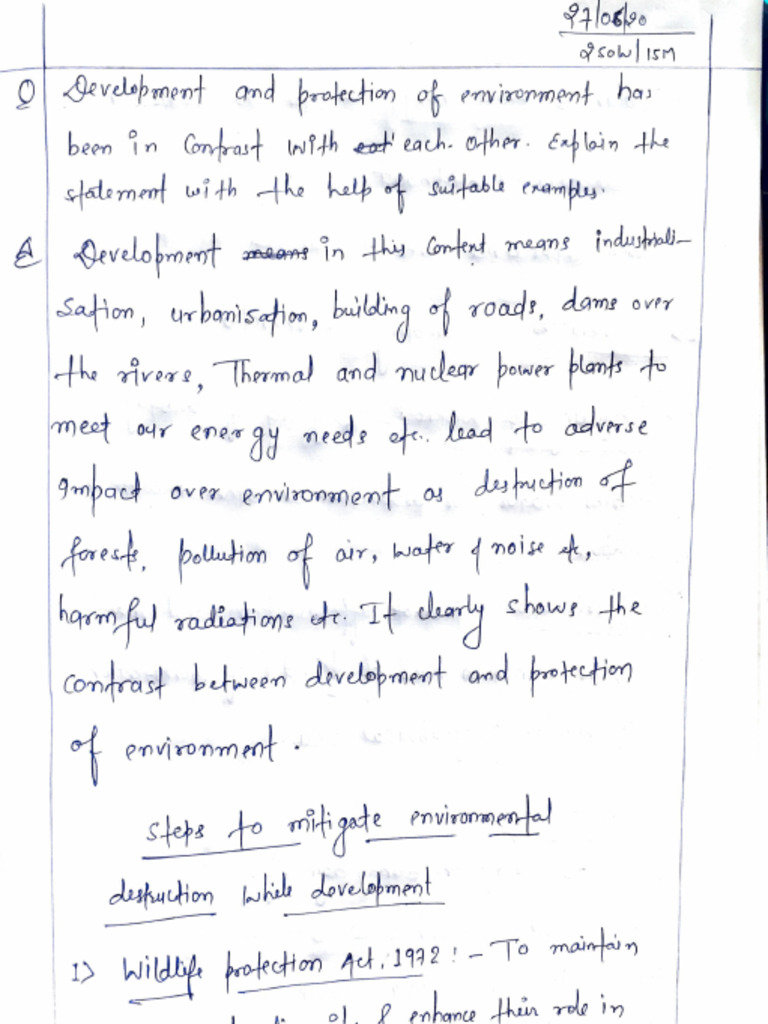 27/06/20
250W/15M
Q Development and protection of environment has
been in Contrast with each other. Explain the
statement with the help of suitable examples.
A Development means in this Context means industriali-
sation, urbanisation, building of roads, dams over
the rivers, Thermal and nuclear power plants to
meet our energy needs etc.. lead to adverse
impact over environment as destruction of
forests, pollution of air, water & noise etc,
harmful radiations etc. It clearly shows the
contrast between development and protection
of environment.
Steps to mitigate environmental
destruction while development
1> Wildlife protection Act, 1972 :- To maintain
& enhance their role in